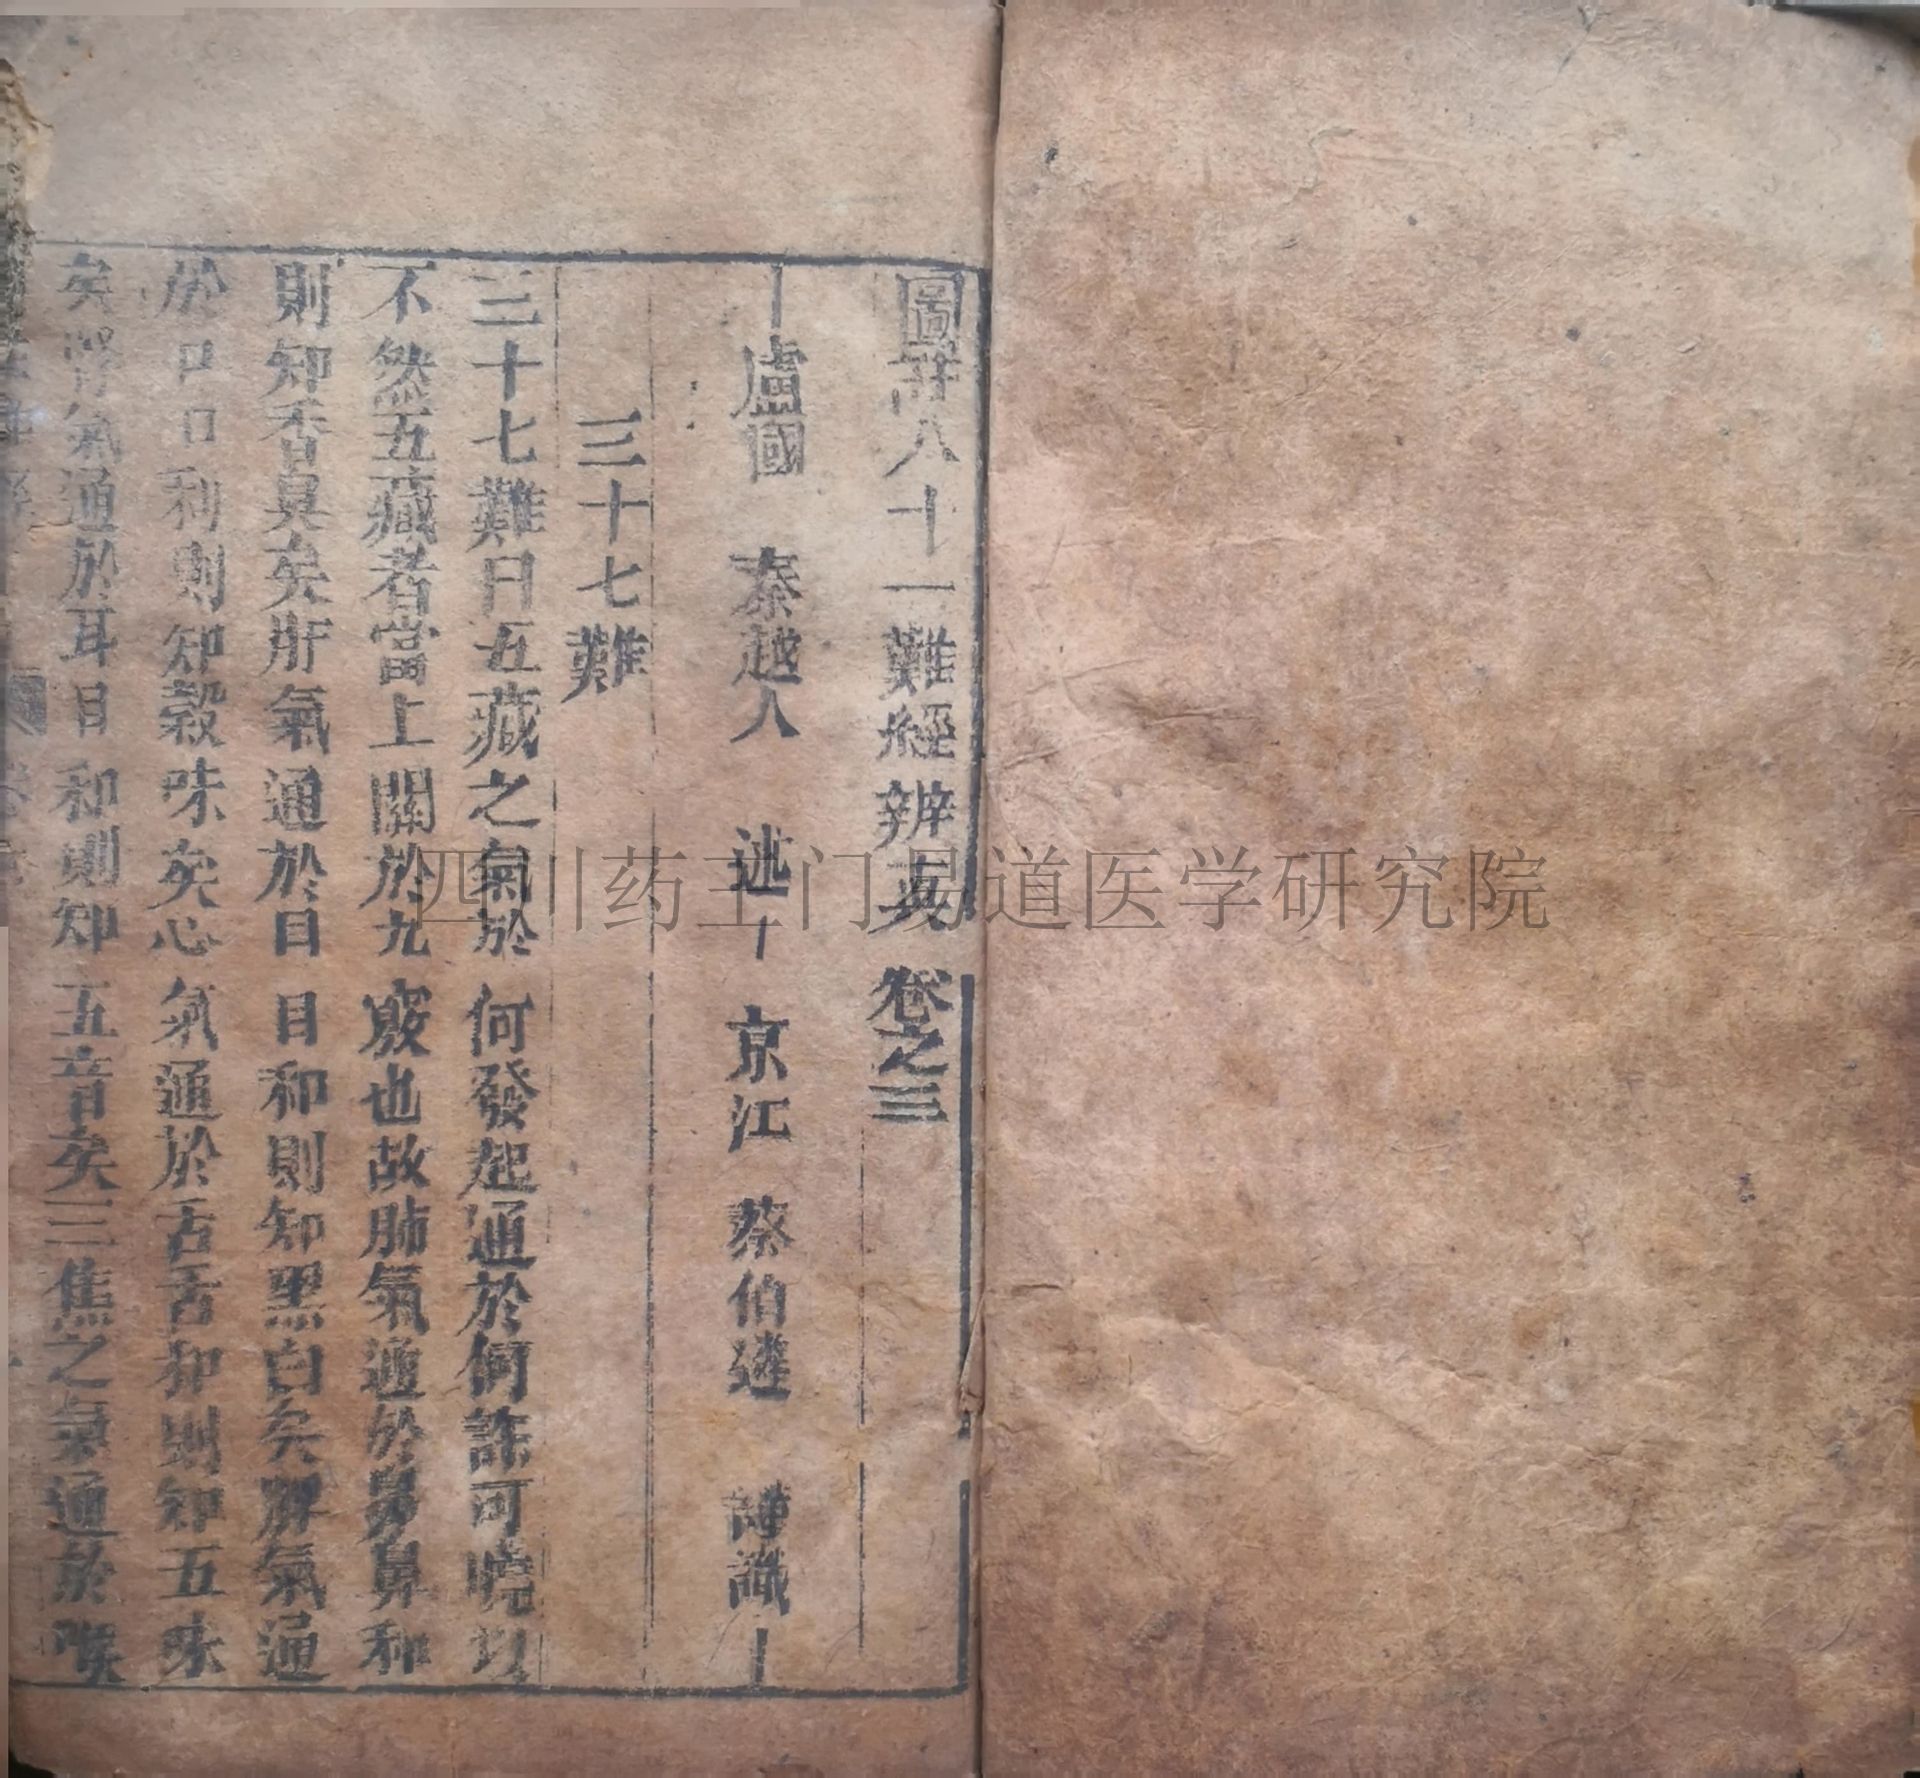 圖註八十一難經辨真 卷之三
盧國 秦越人 述 京江 蔡伯遴 謹識
三十七難
三十七難曰五藏之氣於何發起通於何許可曉以
不然五藏者當上關於九竅也故肺氣通於鼻鼻和
則知香臭矣肝氣通於目目和則知黑白矣脾氣通
於口口和則知穀味矣心氣通於舌舌和則知五味
矣腎氣通於耳耳和則知五音矣三焦之氣通於喉
四川药王门易道医学研究院